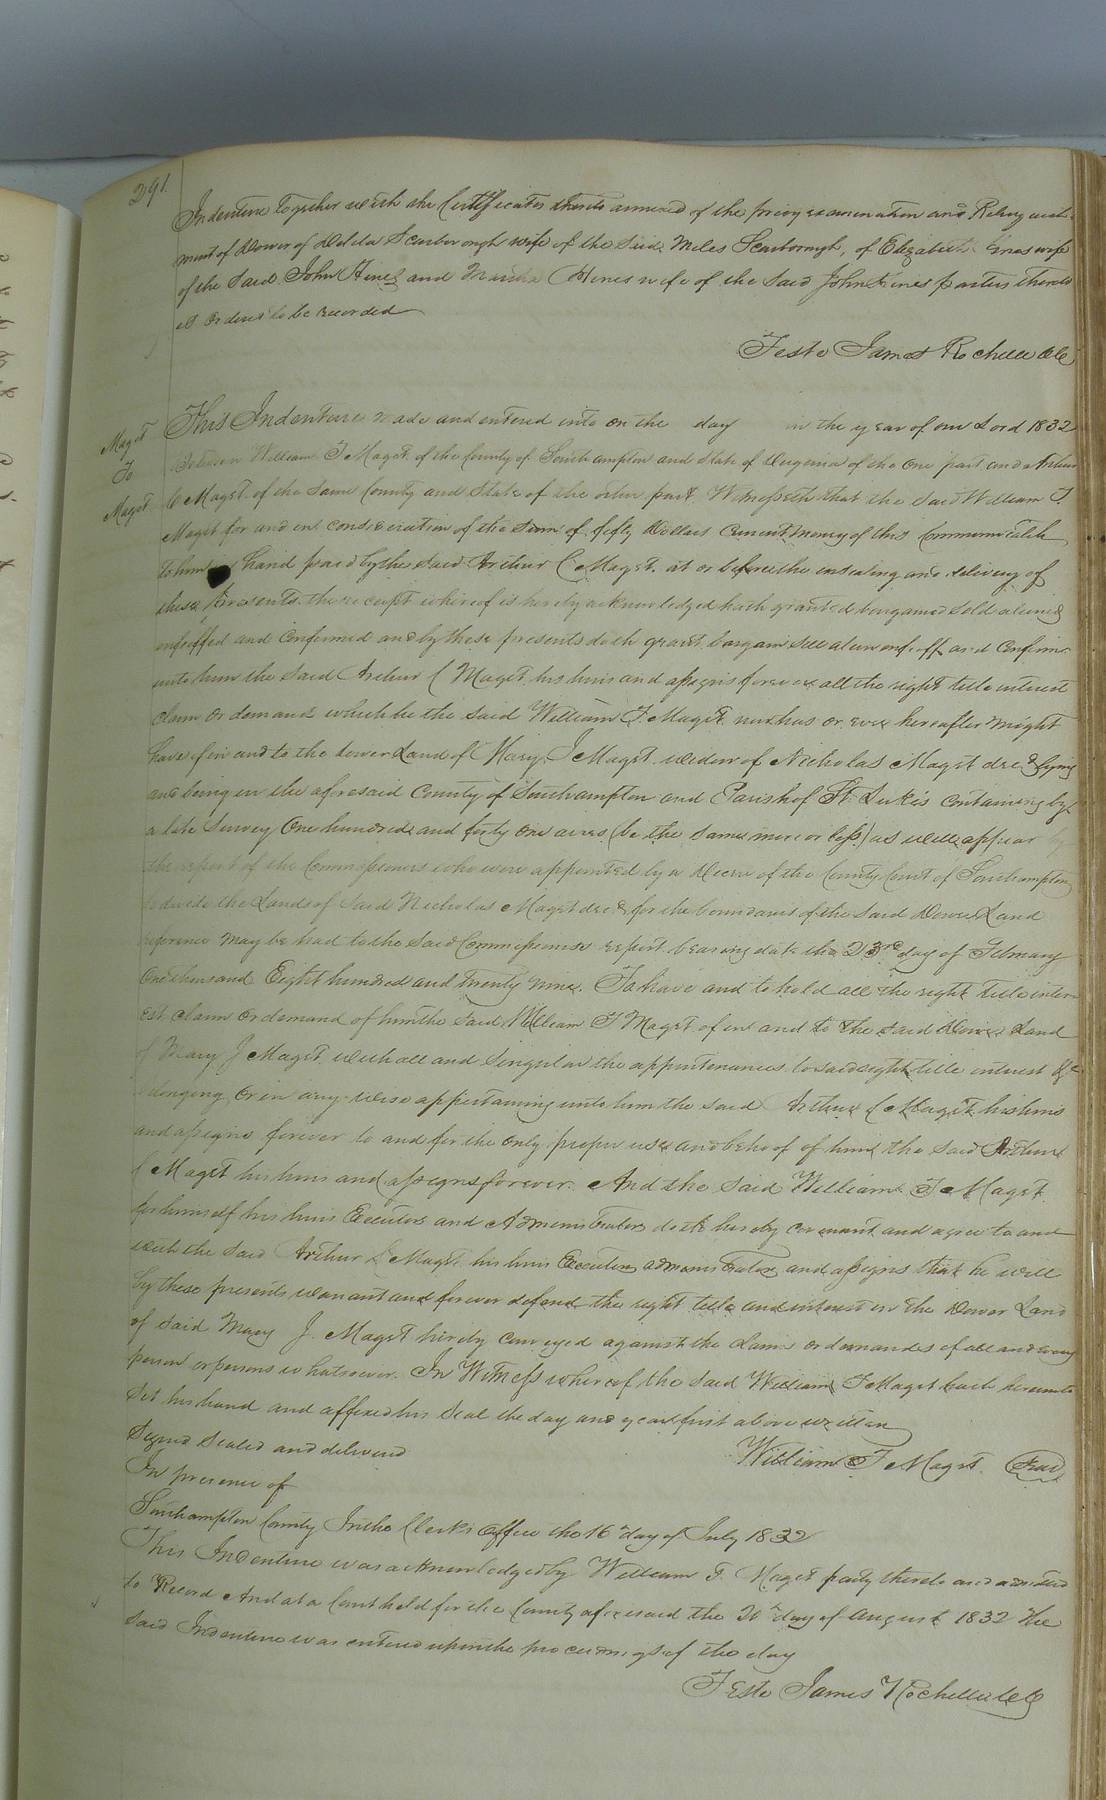 291.
Indenture together with the Certificates thereto annexed of the privy examination and Relinquish
ment of Dower of Delila Scarborough wife of the Said Miles Scarborough, of Elizabeth wife
of the Said John Hines and Martha Hines wife of the Said John Hines parties thereto
is Ordered to be recorded
Teste James Rochelle ClC
Maget
To
Maget
This Indenture made and entered into on the day in the year of our Lord 1832
Between William T Maget of the County of Southampton and State of Virginia of the One part and Arthur
C Maget of the Same County and State of the other part. Witnesseth that the Said William T
Maget for and in consideration of the Sum of fifty Dollars Current money of this Commonwealth
to him in hand paid by the Said Arthur C Maget at or before the ensealing and delivery of
these presents the receipt whereof is hereby acknowledged hath granted bargained Sold aliened
enfeoffed and Confirmed and by these presents doth grant bargain Sell alien enfeoff and Confirm
unto him the Said Arthur C Maget his heirs and assigns forever all the right title interest
claim or demand which he the Said William T Maget now has or ever hereafter might
have of in and to the dower Land of Mary J Maget widow of Nicholas Maget decd lying
and being in the aforesaid County of Southampton and Parish of St. Luke's Containing by
a late Survey One hundred and forty one acres (be the Same more or less) as will appear by
the report of the Commissioners who were appointed by a Decree of the County Court of Southampton
to divide the Lands of Said Nicholas Maget decd for the boundaries of the Said Dower Land
reference may be had to the Said Commissioners report bearing date the 23rd day of February
One thousand Eight hundred and twenty nine. To have and to hold all the right title inter
est claim or demand of him the Said William T Maget of in and to the Said Dower Land
of Mary J Maget with all and Singular the appurtenances to said right title interest &c
belonging or in any wise appertaining unto him the Said Arthur C Maget his heirs
and assigns forever to and for the only proper use and behoof of him the Said Arthur
C Maget his heirs and assigns forever. And the Said William T Maget
for himself his heirs Executors and Administrators doth hereby covenant and agree to and
with the Said Arthur C Maget his heirs Executors administrators and assigns that he will
by these presents warrant and forever defend the right title and interest in the Dower Land
of Said Mary J. Maget hereby conveyed against the claims or demands of all and every
person or persons whatsoever. In Witness whereof the Said William T Maget hath hereunto
Set his hand and affixed his Seal the day and year first above written
Signed Sealed and delivered
William T Maget. Seal
In presence of
Southampton County In the Clerk's Office the 16th day of July 1832
This Indenture was acknowledged by William T. Maget party thereto and admitted
to Record And at a Court held for the County aforesaid the 20th day of August 1832 The
Said Indenture was entered upon the proceedings of the day
Teste James Rochelle ClC